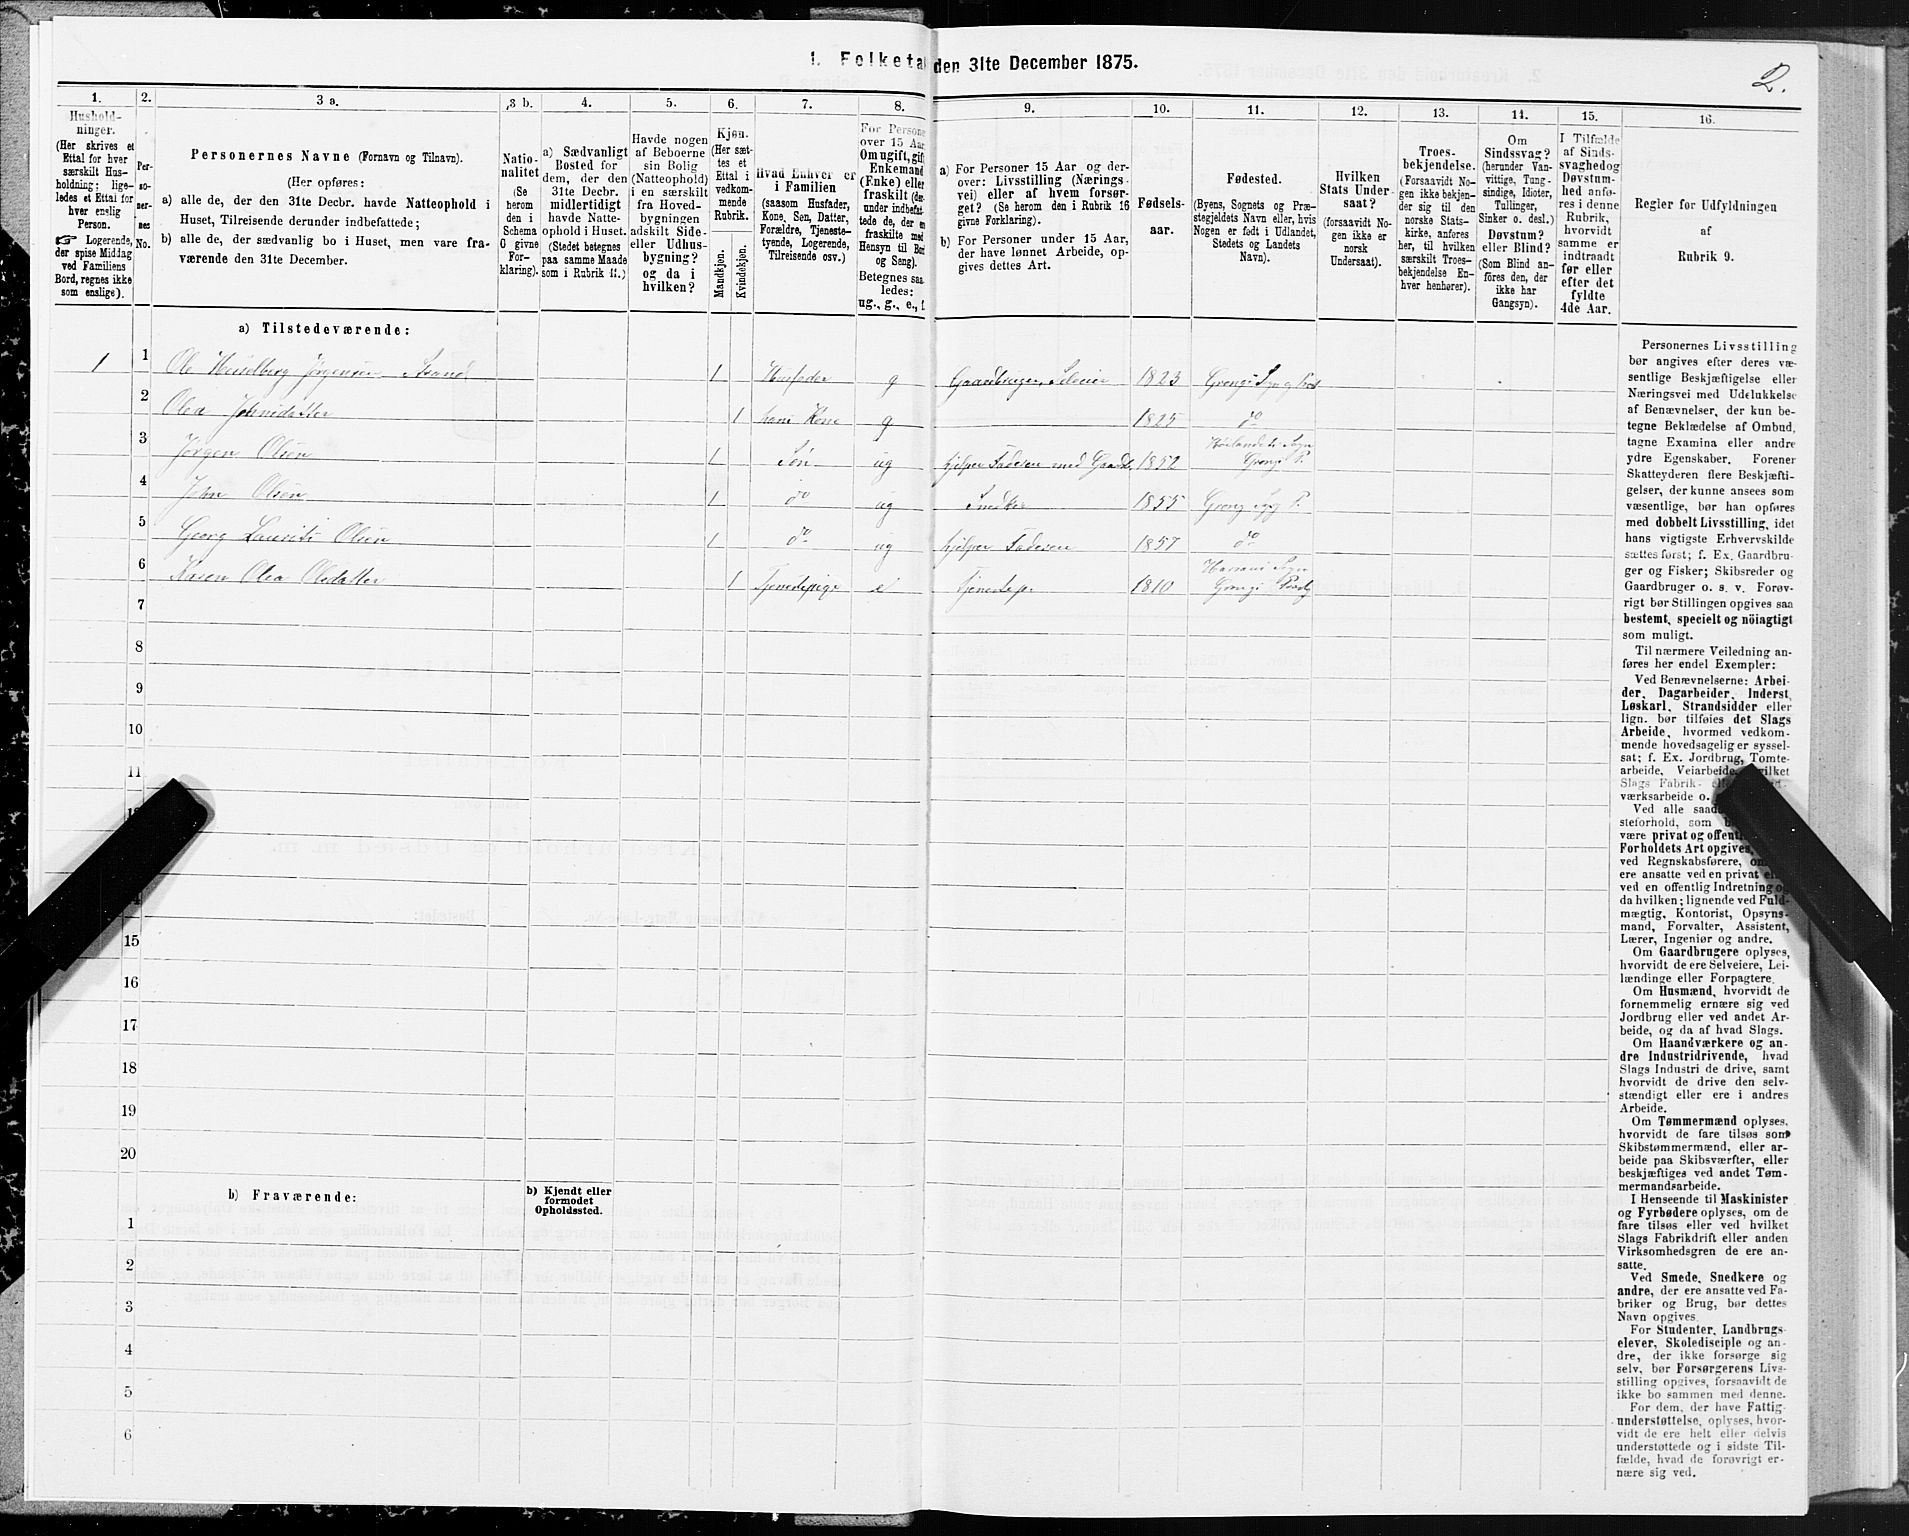 1. Folketæ den 31te December 1875.
2.
1.
Hushold-
ninger.
(Her skrives et
Ettal for hver
særskilt Hus-
holdning; lige-
ledes et Ettal for
hver enslig
Person.
☞ Logerende,
der spise Middag
ved Familiens
Bord, regnes ikke
som enslige).
2.
Per-
so-
ner-
nes
No.
3 a.
Personernes Navne (Fornavn og Tilnavn).
(Her opføres:
a) alle de, der den 31te Decbr. havde Natteophold i
Huset, Tilreisende derunder indbefattede;
b) alle de, der sædvanlig bo i Huset, men vare fra-
værende den 31te December.
3 b.
Natio-
nalitet
(Se
herom
den i
Schema
O givne
For-
klaring).
4.
a) Sædvanligt
Bosted for
dem, der den
31te Decbr.
midlertidigt
havde Natte-
ophold i Huset.
(Stedet betegnes
paa samme Maade
som i Rubrik 11.)
5.
Havde nogen
af Beboerne
sin Bolig
(Natteophold)
i en særskilt
fra Hoved-
bygningen
adskilt Side-
eller Udhus-
bygning?
og da i
hvilken?
6.
Kjøn.
(Her sæt-
tes et
Ettal i
vedkom-
mende
Rubrik.
Mandkjøn.
Kvindekjøn.
7.
Hvad Enhver er
i Familien
(saasom Husfader,
Kone, Søn, Datter,
Forældre, Tjeneste-
tyende, Logerende,
Tilreisende osv.)
8.
For Persone
over 15 Aar
Om ugift, gift
Enkemand
(Enke) eller
fraskilt (der-
under indbefat-
tede de, der en
fraskilte med
Hensyn til Bord
og Seng).
Betegnes saa
ledes:
ug., g., e., f.
9.
a) For Personer 15 Aar og der-
over: Livsstilling (Nærings-
vei) eller af hvem forsør-
get? (Se herom den i Rubrik 16
givne Forklaring).
b) For Personer under 15 Aar,
der have lønnet Arbeide, op-
gives dettes Art.
10.
Fødsels-
aar.
11.
Fødested.
(Byens, Sognets og Præ-
stegjeldets Navn eller, hvis
Nogen er født i Udlandet,
Stedets og Landets
Navn).
12.
Hvilken
Stats Under-
saat?
(forsaavidt No-
gen ikke er
norsk
Undersaat).
13.
Troes-
bekjendelse.
(Forsaavidt No-
gen ikke bekjen-
der sig til den
norske Stats-
kirke, anføres
her, til hvilken
særskilt Troes-
bekjendelse En-
hver henhører).
14.
Om
Sindssvag?
(herunder Van-
vittige, Tung-
sindige, Idioter,
Tullinger,
Sinker o. desl.)
Døvstum?
eller Blind?
(Som Blind an-
föres den, der
ikke har
Gangsyn).
15.
I Tilfælde
af Sinds-
svaghed og
Døvstum-
hed anfø-
res i denne
Rubrik,
hvorvidt
samme er
indtraadt
før eller
efter det
fyldte
4de Aar.
16.
Regler for Udfyldningen
af
Rubrik 9.
a) Tilstedeværende:
1 1 Ole Heiselberg Jörgensen Strand 1 Husfader g Gaardbruger, Seleier 1823 Grongs Sogn og Præst
2 Olea Johnsdatter 1 hans Kone g 1825 do
3 Jörgen Olsen 1 Søn ug hjelper Faderen med Gaardb. 1852 Höilandets Sogn Grongs P.
4 John Olsen 1 do ug Snedker 1855 Grong S og P.
5 Georg Lauritz Olsen 1 do ug hjelper Faderen 1857 do
6 Karen Olea Olsdatter 1 Tjenestepige e Tjenestep. 1810 Harrans Sogn Grongs Præstg
7
8
9
10
11
15
16
17
18
19
20
b) Fraværende:
b) Kjendt eller
formodet
Opholdssted.
1
2
3
4
5
6
Personernes Livsstilling
bør angives efter deres væ-
sentlige Beskjæftigelse eller
Næringsvei med Udelukkelse
af Benævnelser, der kun be-
tegne Beklædelse af Ombud,
tagne Examina eller andre
ydre Egenskaber. Forener
Skatteyderen flere Beskjæfti-
gelser, der kunne ansees som
væsentlige, bør han opføres
med dobbelt Livsstilling, idet
hans vigtigste Erhvervskilde
sættes først; f. Ex. Gaardbru-
ger og Fisker; Skibsreder og
Gaardbruger o. s. v. Forøv-
rigt bør Stillingen opgives saa
bestemt, specielt og nöiagtigt
som muligt.
Til nærmere Veiledning an-
føres her endel Exempler:
Ved Benævnelserne: Arbei-
der, Dagarbeider, Inderst,
Løskarl, Strandsidder eller
lign. bør tilføies det Slags
Arbeide, hvormed vedkom-
mende hovedsagelig er syssel-
sat; f. Ex. Jordbrug, Tomte-
arbeide, Veiarbeide, hvilket
Slags Fabrik-
værksarbeide o.
Ved alle saad
steforhold, som
være privat og offen
Forholdets Art opgives,
ved Regnskabsførere,
ere ansatte ved en privat
ved en offentlig Indretning og
da hvilken; lignende ved Fuld-
mægtig, Kontorist, Opsyns-
mand, Forvalter, Assistent,
Lærer, Ingeniør og andre.
Om Gaardbrugere oplyses,
hvorvidt de ere Selveiere, Lei-
lændinge eller Forpagtere.
Om Husmænd, hvorvidt de
fornemmelig ernære sig ved
Jordbrug eller ved andet Ar-
beide, og da af hvad Slags.
Om Haandværkere og an-
dre Industridrivende, hvad
Slags Industri de drive, samt
hvorvidt de drive den selv-
stændigt eller ere i andres
Arbeide.
Om Tømmermænd oplyses,
hvorvidt de fare tilsøs som
Skibstømmermænd, eller ar-
beide paa Skibsværfter, eller
beskjæftiges ved andet Tøm-
mermandsarbeide.
I Henseende til Maskinister
og Fyrbødere oplyses, om de
fare tilsøs eller ved hvilket
Slags Fabrikdrift eller anden
Virksomhedsgren de ere an-
satte.
Ved Smede, Snedkere og
andre, der ere ansatte ved Fa-
briker og Brug, bør dettes
Navn opgives.
For Studenter, Landbrugs-
elever, Skoledisciple og an-
dre, der ikke forsørge sig
selv, bør Forsørgerens Livs-
stilling opgives, forsaavidt de
ikke bo sammen med denne.
For dem, der have Fattig-
understøttelse, oplyses, hvor-
vidt de ere helt eller delvis
understøttede og i sidste Til-
fælde, hvad de forøvrigt er-
nære sig ved.